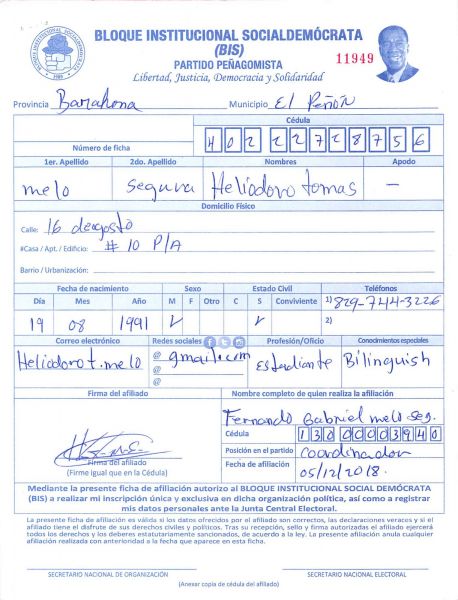 BLOQUE INSTITUCIONAL SOCIALDEMÓCRATA
(BIS)
PARTIDO PEÑAGOMISTA
11949
Libertad, Justicia, Democracia y Solidaridad
Provincia Barahona Municipio El Peñón
Cédula
Número de ficha 402 2272875 6
1er. Apellido 2do. Apellido Nombres Apodo
melo segura Heliodoro tomas —
Domicilio Físico
Calle: 16 deagosto
#Casa / Apt. / Edificio: # 10 P/A
Barrio / Urbanización:
Fecha de nacimiento Sexo Estado Civil Teléfonos
Día Mes Año M F Otro C S Conviviente 1) 829-744-3226
19 08 1991 ✓ ✓ 2)
Correo electrónico Redes sociales Profesión/Oficio Conocimientos especiales
Heliodoro t.melo @ gmail.com Estudiante Bilinguish
@
@
Firma del afiliado Nombre completo de quien realiza la afiliación
Fernando Gabriel melo seg.
Cédula
13000003940
Posición en el partido coordinador
Firma del afiliado
(Firme igual que en la Cédula)
Fecha de afiliación 05/12/2018.
Mediante la presente ficha de afiliación autorizo al BLOQUE INSTITUCIONAL SOCIAL DEMÓCRATA
(BIS) a realizar mi inscripción única y exclusiva en dicha organización política, así como a registrar
mis datos personales ante la Junta Central Electoral.
La presente ficha de afiliación es válida si los datos ofrecidos por el afiliado son correctos, las declaraciones veraces y si el
afiliado tiene el disfrute de sus derechos civiles y políticos. Tras su recepción, sello y firma autorizadas el afiliado ejercerá
todos los derechos y los deberes estatutariamente sancionados, de acuerdo a la ley. La presente afiliación anula cualquier
afiliación realizada con anterioridad a la fecha que aparece en esta ficha.
SECRETARIO NACIONAL DE ORGANIZACIÓN SECRETARIO NACIONAL ELECTORAL
(Anexar copia de cédula del afiliado)